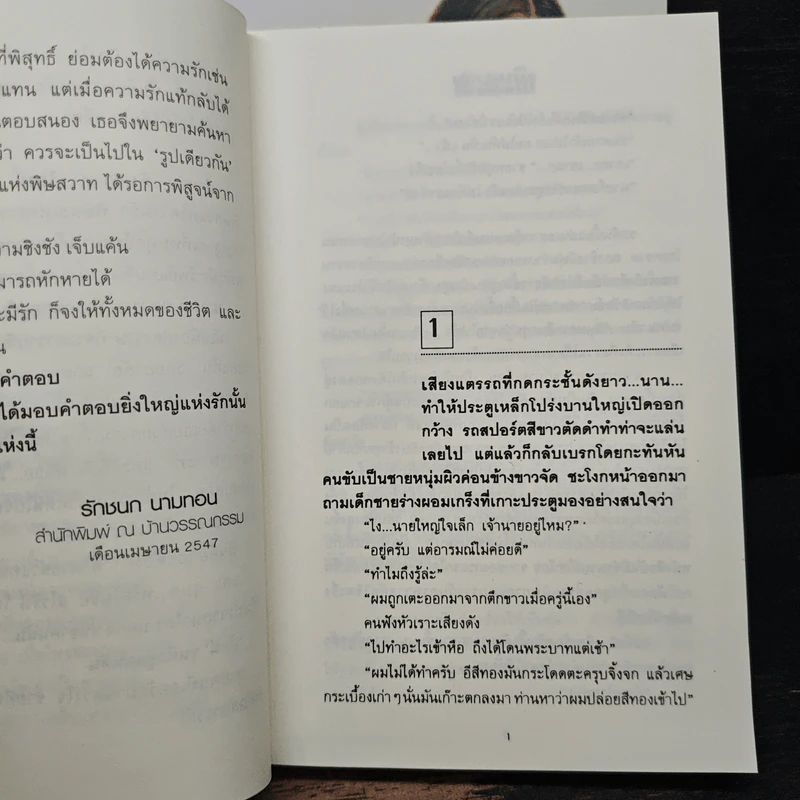 ที่พิสุทธิ์ ย่อมต้องได้ความรักเช่น
แทน แต่เมื่อความรักแท้กลับได้
ตอบสนอง เธอจึงพยายามค้นหา
ว่า ควรจะเป็นไปใน ‘รูปเดียวกัน’
แห่งพิษสวาท ได้รอการพิสูจน์จาก
ามชิงชัง เจ็บแค้น
มารถหักหายได้
ะมีรัก ก็จงให้ทั้งหมดของชีวิต และ
น
คำตอบ
ได้มอบคำตอบยิ่งใหญ่แห่งรักนั้น
ห่งนี้
รักชนก นามทอน
สำนักพิมพ์ ณ บ้านวรรณกรรม
เดือนเมษายน 2547
1
เสียงแตรรถที่กดกระชั้นดังยาว...นาน...
ทำให้ประตูเหล็กโปร่งบานใหญ่เปิดออก
กว้าง รถสปอร์ตสีขาวตัดดำทำท่าจะแล่น
เลยไป แต่แล้วก็กลับเบรกโดยกะทันหัน
คนขับเป็นชายหนุ่มผิวค่อนข้างขาวจัด ชะโงกหน้าออกมา
ถามเด็กชายร่างผอมเกร็งที่เกาะประตูมองอย่างสนใจว่า
“ไง...นายใหญ่ใจเล็ก เจ้านายอยู่ไหม?”
“อยู่ครับ แต่อารมณ์ไม่ค่อยดี”
“ทำไมถึงรู้ล่ะ”
“ผมถูกเตะออกมาจากตึกขาวเมื่อครู่นี้เอง”
คนฟังหัวเราะเสียงดัง
“ไปทำอะไรเข้าหือ ถึงได้โดนพระบาทแต่เช้า”
“ผมไม่ได้ทำครับ อีสีทองมันกระโดดตะครุบจิ้งจก แล้วเศษ
กระเบื้องเก่าๆนั่นมันเก๊าะตกลงมา ท่านหาว่าผมปล่อยสีทองเข้าไป”
1